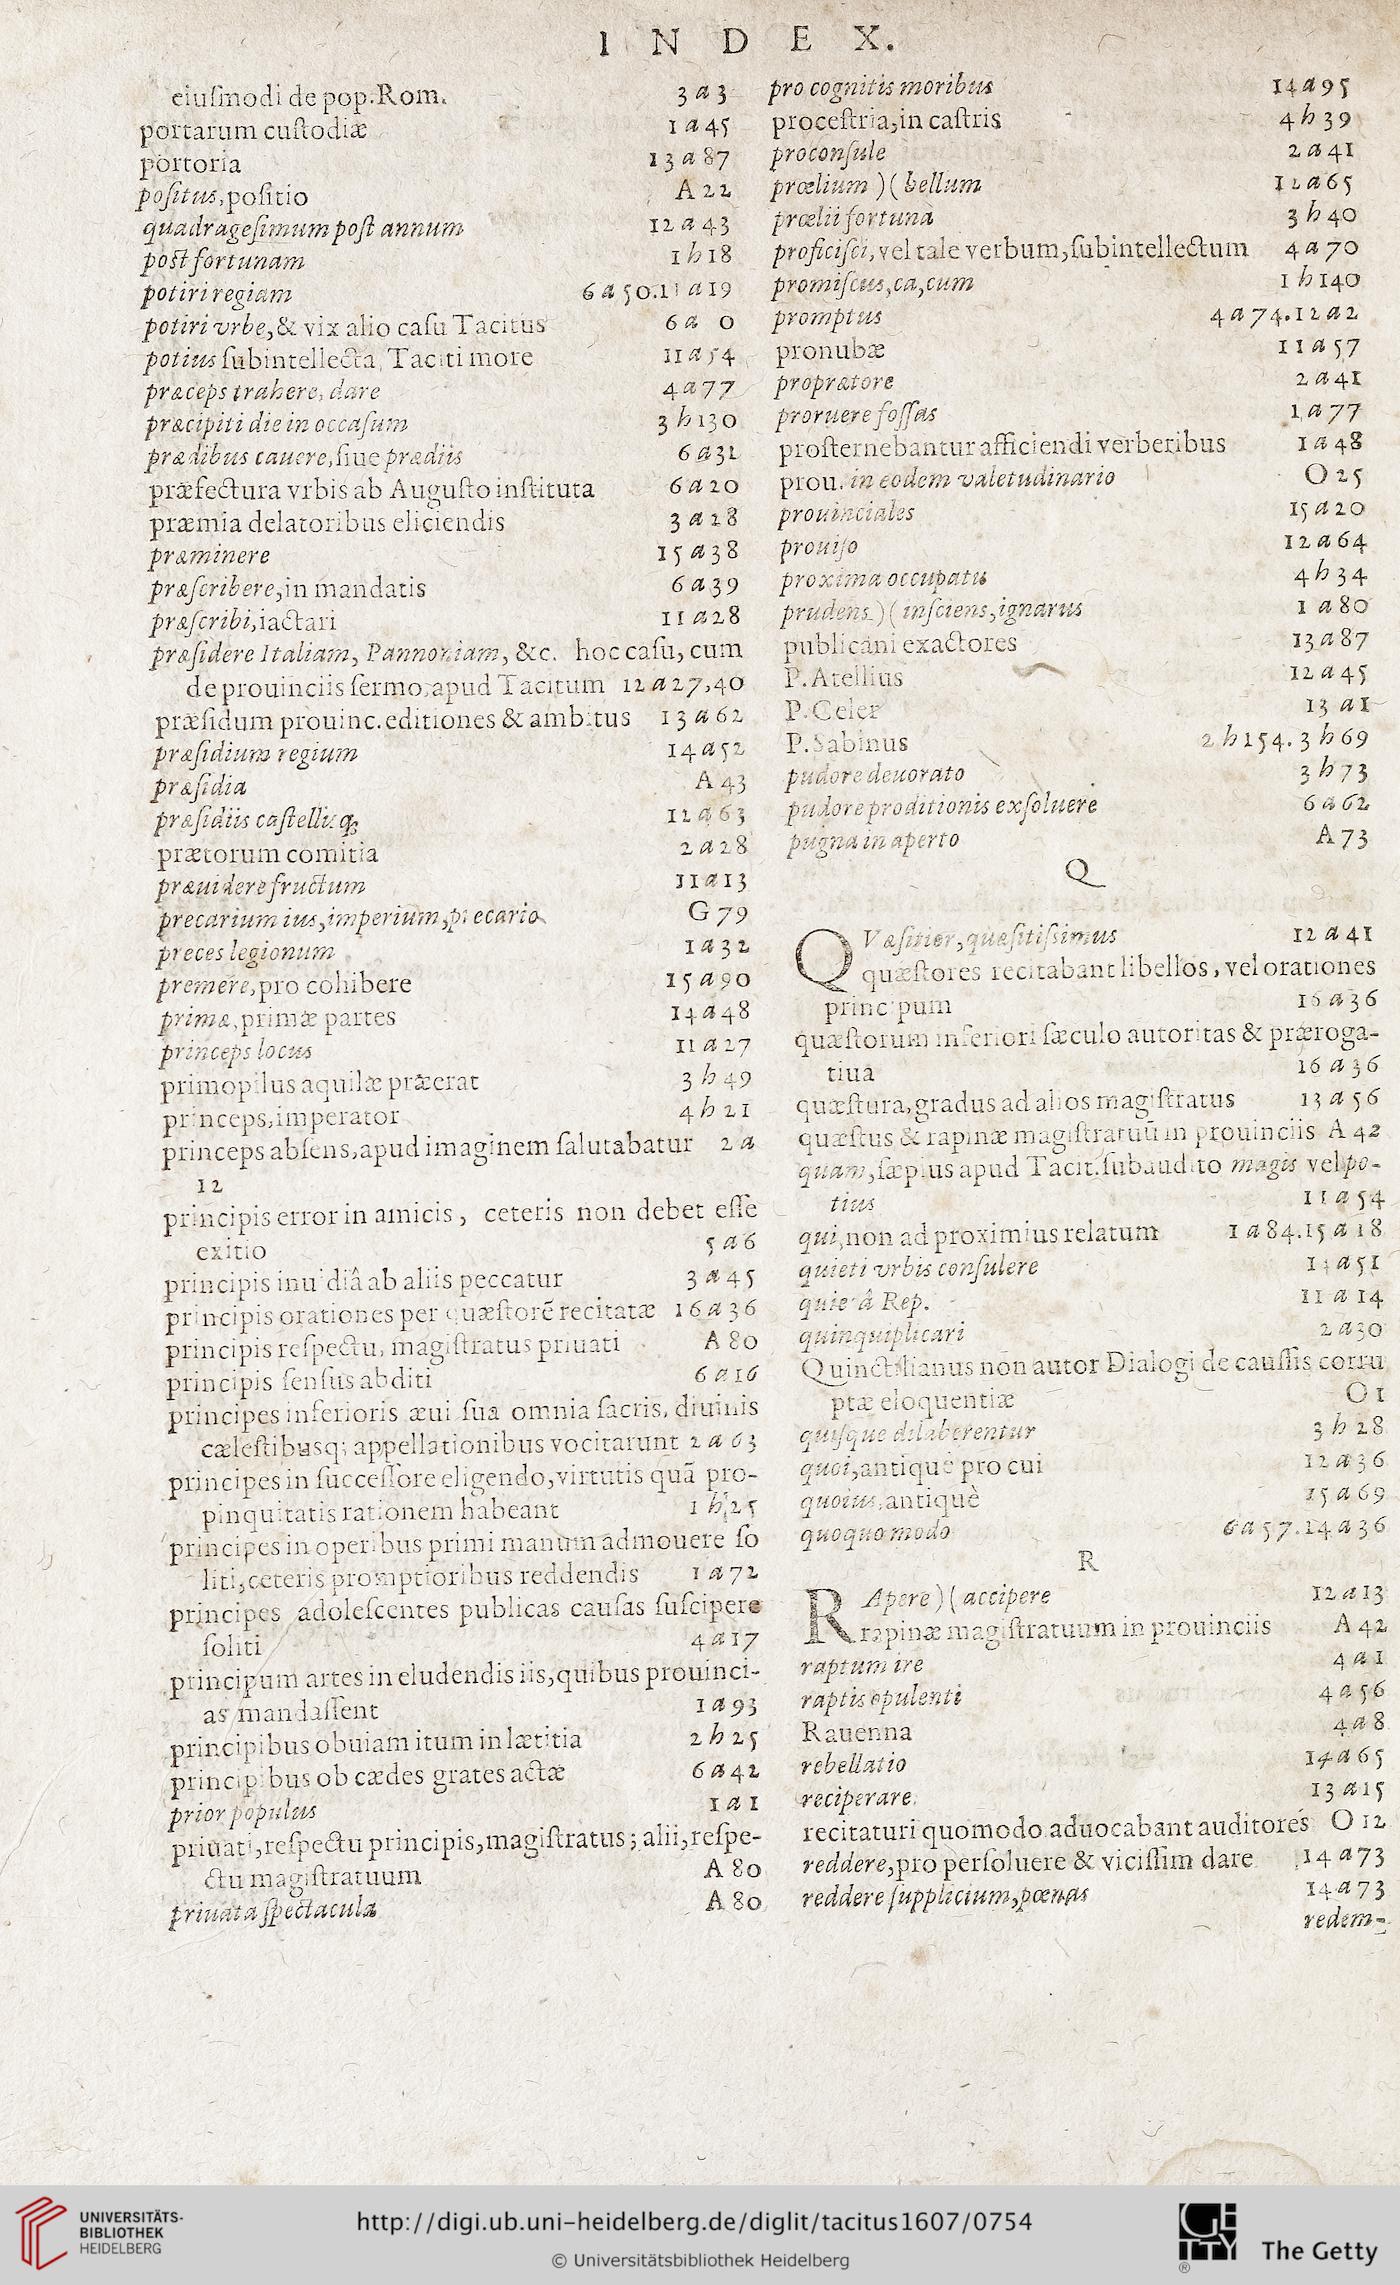 INDEX.
eiuſmodi de pop. Rom. 3 a 3
portarum cuſtodiæ 1 a 45
portoria 13 a 87
poſitus, poſitio A 22
quadrageſimum poſt annum 12 a 43
poſt fortunam 1 h 18
potiri regiam 6 a 50. 11 a 19
potiri vrbe, & vix alio caſu Tacitus 6 a 0
potius ſubintellecta Taciti more 11 a 54
præceps trahere, dare 4 a 77
præcipiti die in occaſum 3 h 130
prædibus cauere, ſiue prædiis 6 a 31
præfectura vrbis ab Auguſto inſtituta 6 a 20
præmia delatoribus eliciendis 3 a 28
præminere 15 a 38
præſcribere, in mandatis 6 a 39
præſcribi, iactari 11 a 28
præſidere Italiam, Pannoniam, &c. hoc caſu, cum
de prouinciis ſermo, apud Tacitum 12 a 27, 40
præſidum prouinc. editiones & ambitus 13 a 62
præſidium regium 14 a 52
præſidia A 43
præſidiis caſtelliſq; 12 a 63
prætorum comitia 2 a 28
præuidere fructum 11 a 13
precarium ius, imperium, precario G 79
preces legionum 1 a 32
premere, pro cohibere 15 a 90
primæ, primæ partes 14 a 48
princeps locus 11 a 27
primopilus aquilæ præerat 3 h 49
princeps, imperator 4 h 21
princeps abſens, apud imaginem ſalutabatur 2 a
12
principis error in amicis, ceteris non debet eſſe
exitio 5 a 6
principis inuidiâ ab aliis peccatur 3 a 45
principis orationes per quæſtorē recitatæ 16 a 36
principis reſpectu, magiſtratus priuati A 80
principis ſenſus abditi 6 a 16
principes inferioris æui ſua omnia ſacris, diuinis
cæleſtibusq; appellationibus vocitarunt 2 a 63
principes in ſucceſſore eligendo, virtutis quā pro-
pinquitatis rationem habeant 1 h 25
principes in operibus primi manum admouere ſo
liti, ceteris promptioribus reddendis 1 a 72
principes adoleſcentes publicas cauſas ſuſcipere
ſoliti 4 a 17
principum artes in eludendis iis, quibus prouinci-
as mandaſſent 1 a 93
principibus obuiam itum in lætitia 2 h 25
principibus ob cædes grates actæ 6 a 42
prior populus 1 a 1
priuati, reſpectu principis, magiſtratus; alii, reſpe-
ctu magiſtratuum A 80
priuata ſpectacula A 80
pro cognitis moribus 14 a 95
proceſtria, in caſtris 4 h 39
proconſule 2 a 41
prœlium )( bellum 12 a 65
prœlii fortuna 3 h 40
proficiſci, vel tale verbum, ſubintellectum 4 a 70
promiſcus, ca, cum 1 h 140
promptus 4 a 74. 12 a 2
pronubæ 11 a 57
proprætore 2 a 41
proruere foſſas 1 a 77
proſternebantur afficiendi verberibus 1 a 48
prou. in eodem valetudinario O 25
prouinciales 15 a 20
prouiſo 12 a 64
proxima occupatu 4 h 34
prudens )( inſciens, ignarus 1 a 80
publicani exactores 13 a 87
P. Atellius 12 a 45
P. Celer 13 a 1
P. Sabinus 2 h 154. 3 h 69
pudore deuorato 3 h 73
pudore proditionis exſoluere 6 a 62
pugna in aperto A 73
Q
QVæſitior, quæſitiſsimus 12 a 41
quæſtores recitabant libellos, vel orationes
principum 16 a 36
quæſtorum inferiori ſæculo autoritas & præroga-
tiua 16 a 36
quæſtura, gradus ad alios magiſtratus 13 a 56
quæſtus & rapinæ magiſtratuū in prouinciis A 42
quam, ſæpius apud Tacit. ſubaudito magis vel po-
tius 11 a 54
qui, non ad proximius relatum 1 a 84. 15 a 18
quieti vrbis conſulere a 51
quietâ Rep. 11 a 14
quinquiplicari 2 a 30
Quinctilianus non autor Dialogi de cauſſis corru
ptæ eloquentiæ O 1
quiſque dilaberentur 3 h 28
quoi, antique pro cui 12 a 36
quoius, antiquè 15 a 69
quoquo modo 6 a 57. 14 a 36
R
RApere )( accipere 12 a 13
rapinæ magiſtratuum in prouinciis A 42
raptum ire 4 a 1
raptis opulenti 4 a 56
Rauenna 4 a 8
rebellatio 14 a 65
reciperare 13 a 15
recitaturi quomodo aduocabant auditores O 12
reddere, pro perſoluere & viciſſim dare 14 a 73
reddere ſupplicium, pœnas 14 a 73
redem-
UNIVERSITÄTS-
BIBLIOTHEK
HEIDELBERG
http://digi.ub.uni-heidelberg.de/diglit/tacitus1607/0754
© Universitätsbibliothek Heidelberg
GETTY
®
The Getty